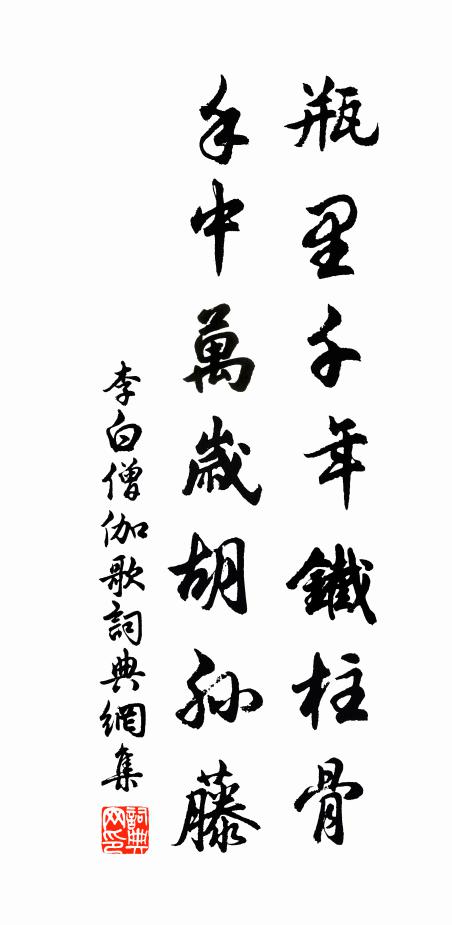 瓶里千年鐵柱骨
手中萬歲胡孫藤
李白僧伽歌詞典網集
詞典網印